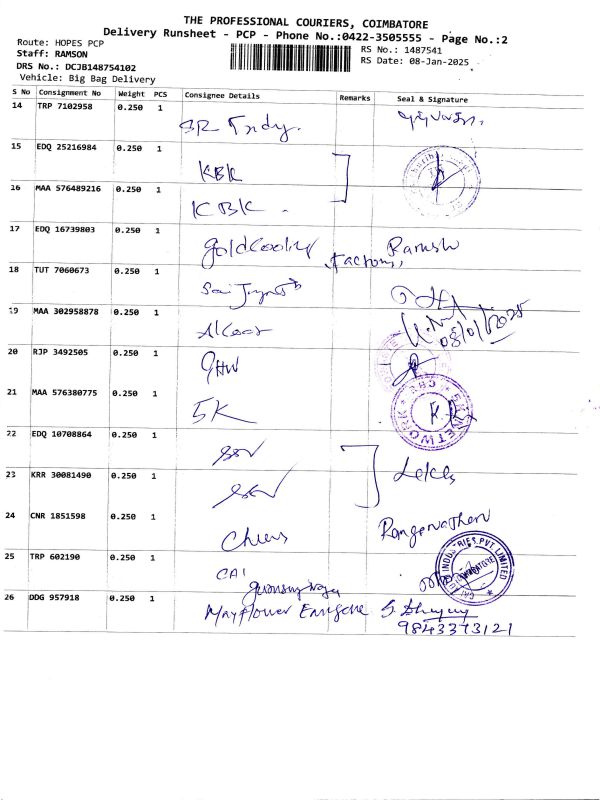 THE PROFESSIONAL COURIERS, COIMBATORE
Delivery Runsheet - PCP - Phone No.:0422-3505555 - Page No.:2
Route: HOPES PCP
Staff: RAMSON
DRS No.: DCJB148754102
Vehicle: Big Bag Delivery
RS No.: 1487541
RS Date: 08-Jan-2025
S No Consignment No Weight PCS Consignee Details Remarks Seal & Signature
14 TRP 7102958 0.250 1
15 EDQ 25216984 0.250 1 KBK
16 MAA 576489216 0.250 1 KBK
17 EDQ 16739803 0.250 1 Ramesh
18 TUT 7060673 0.250 1
19 MAA 302958878 0.250 1 08/01/2025
20 RJP 3492505 0.250 1
21 MAA 576380775 0.250 1 5K 5K NETWORK CBE
22 EDQ 10708864 0.250 1 SSV
23 KRR 30081490 0.250 1 SSV
24 CNR 1851598 0.250 1
25 TRP 602190 0.250 1 CAI CAI INDUSTRIES PVT LIMITED COIMBATORE
26 DDG 957918 0.250 1 Mayflower
9843373121